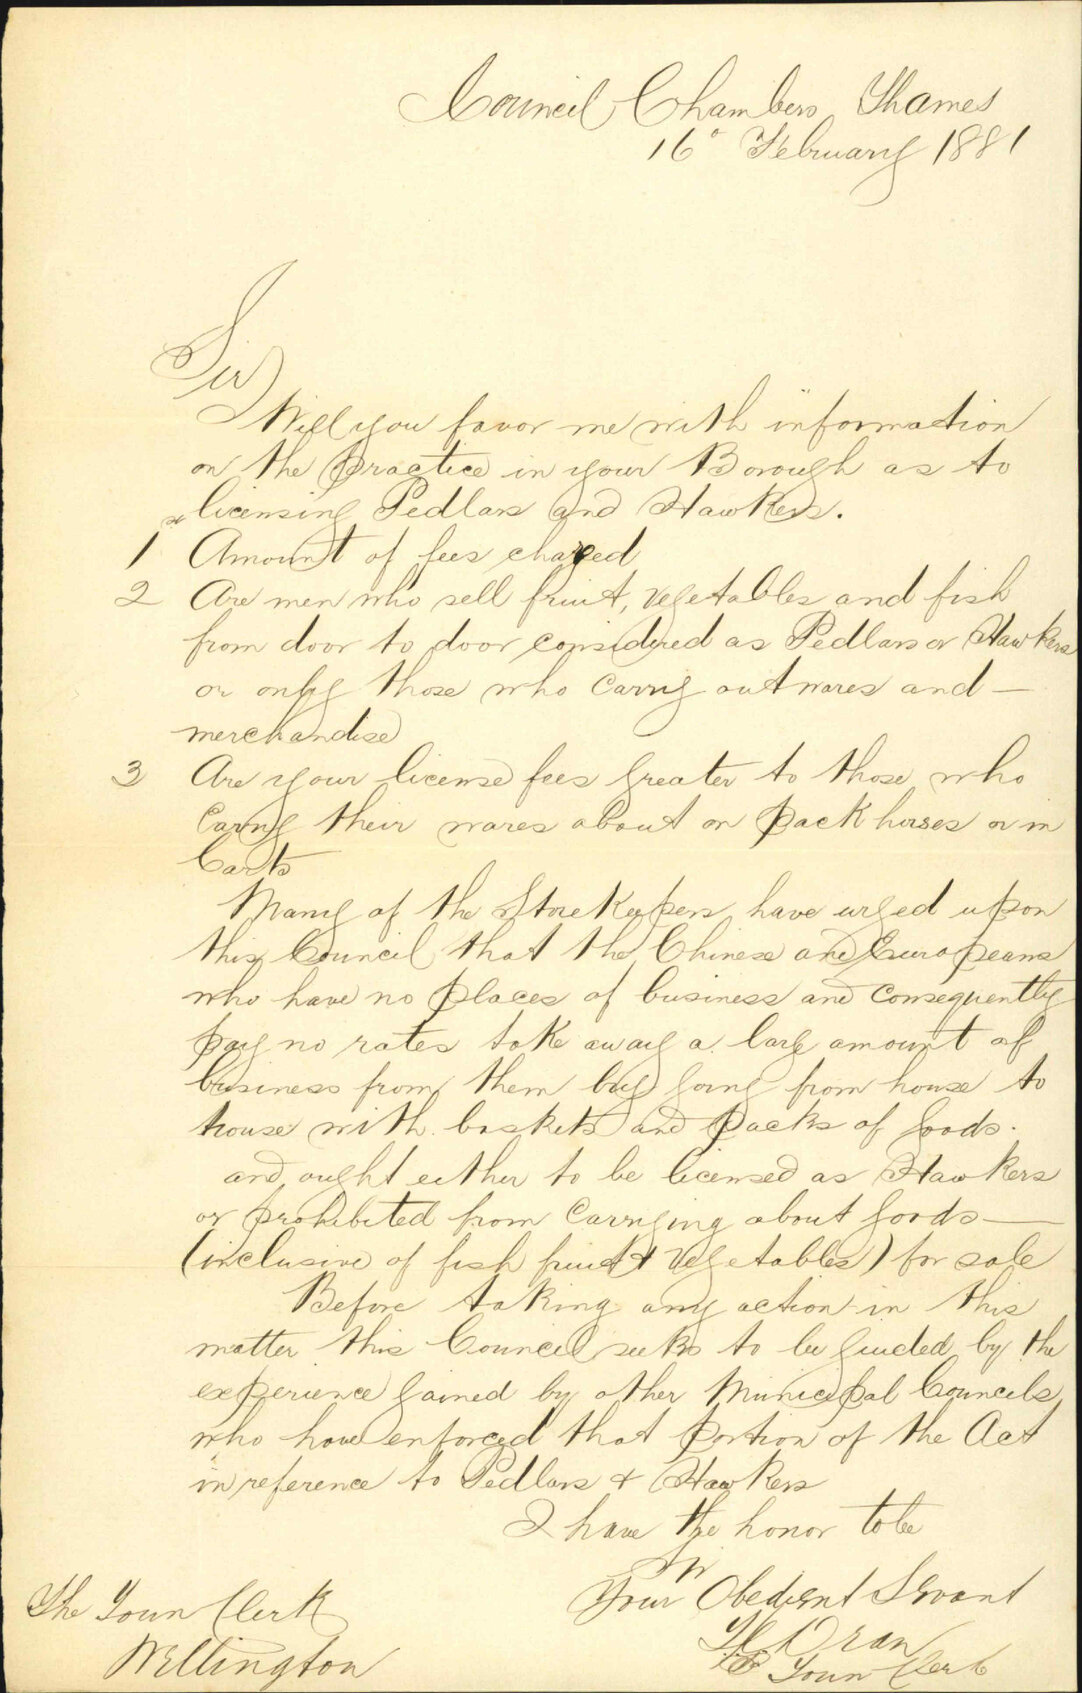 Council Chambers Thames
16° February 1881
Sir
Will you favor me with information
on the practice in your Borough as to
licensing Pedlars and Hawkers.
1 Amount of fees charged
2 Are men who sell fruit, vegetables and fish
from door to door considered as Pedlars or Hawkers
or only those who carry out wares and —
merchandise
3 Are your license fees greater to those who
carry their wares about on pack horses or in
Carts
Many of the Storekeepers have urged upon
this Council that the Chinese and Europeans
who have no places of business and consequently
pay no rates take away a large amount of
business from them by going from house to
house with baskets and packs of goods.
and ought either to be licensed as Hawkers
or prohibited from carrying about goods —
(inclusive of fish fruit & vegetables) for sale
Before taking any action in this
matter this Council seeks to be guided by the
experience gained by other Municipal Councils
who have enforced that portion of the Act
in reference to Pedlars & Hawkers
I have the honor to be
Sir
Your Obedient Servant
Town Clerk
The Town Clerk
Wellington